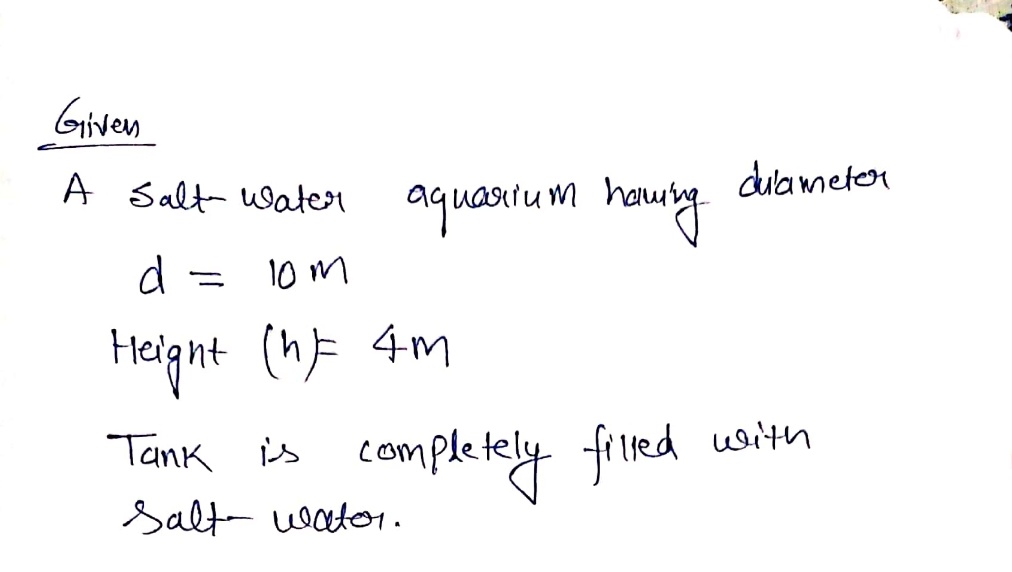 Given
A salt water aquarium having diameter
d = 10 m
Height (h) = 4m
Tank is completely filled with
salt water.